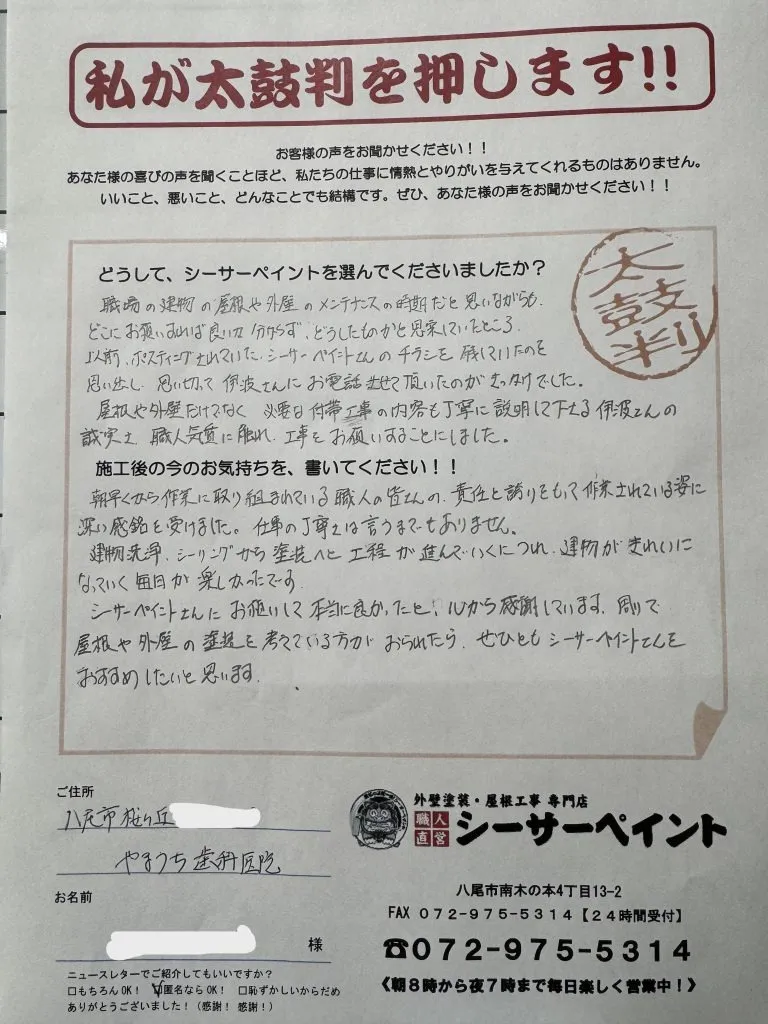 私が太鼓判を押します!!
お客様の声をお聞かせください！！
あなた様の喜びの声を聞くことほど、私たちの仕事に情熱とやりがいを与えてくれるものはありません。
いいこと、悪いこと、どんなことでも結構です。ぜひ、あなた様の声をお聞かせください！！
太鼓判
どうして、シーサーペイントを選んでくださいましたか？
職場の建物の屋根や外壁のメンテナンスの時期だと思いながらも、
どこにお願いすれば良いか分からず、どうしたものかと思案していたところ、
以前、ポスティングされていた、シーサーペイントさんのチラシを残していたのを
思い出し、思い切って伊波さんにお電話させて頂いたのがきっかけでした。
屋根や外壁だけでなく 必要な付帯工事の内容も丁寧に説明して下さる伊波さんの
誠実さ、職人気質に触れ、工事をお願いすることにしました。
施工後の今のお気持ちを、書いてください！！
朝早くから作業に取り組まれている職人の皆さんの、責任と誇りをもって作業されている姿に
深い感銘を受けました。仕事の丁寧さは言うまでもありません。
建物洗浄、シーリングから塗装へと工程が進んでいくにつれ、建物がきれいに
なっていく毎日が楽しかったです。
シーサーペイントさんにお願いして本当に良かったと、心から感謝しています。周りで
屋根や外壁の塗装を考えている方がおられたら、ぜひともシーサーペイントさんを
おすすめしたいと思います。
ご住所
八尾市桜ヶ丘
やまうち歯科医院
お名前
様
ニュースレターでご紹介してもいいですか？
□もちろんOK！ □匿名ならOK！ □恥ずかしいからだめ
ありがとうございました！（感謝！感謝！）
外壁塗装・屋根工事 専門店
職人直営 シーサーペイント
八尾市南木の本4丁目13-2
FAX ０７２-９７５-５３１４【２４時間受付】
☎０７２-９７５-５３１４
《朝８時から夜７時まで毎日楽しく営業中！》